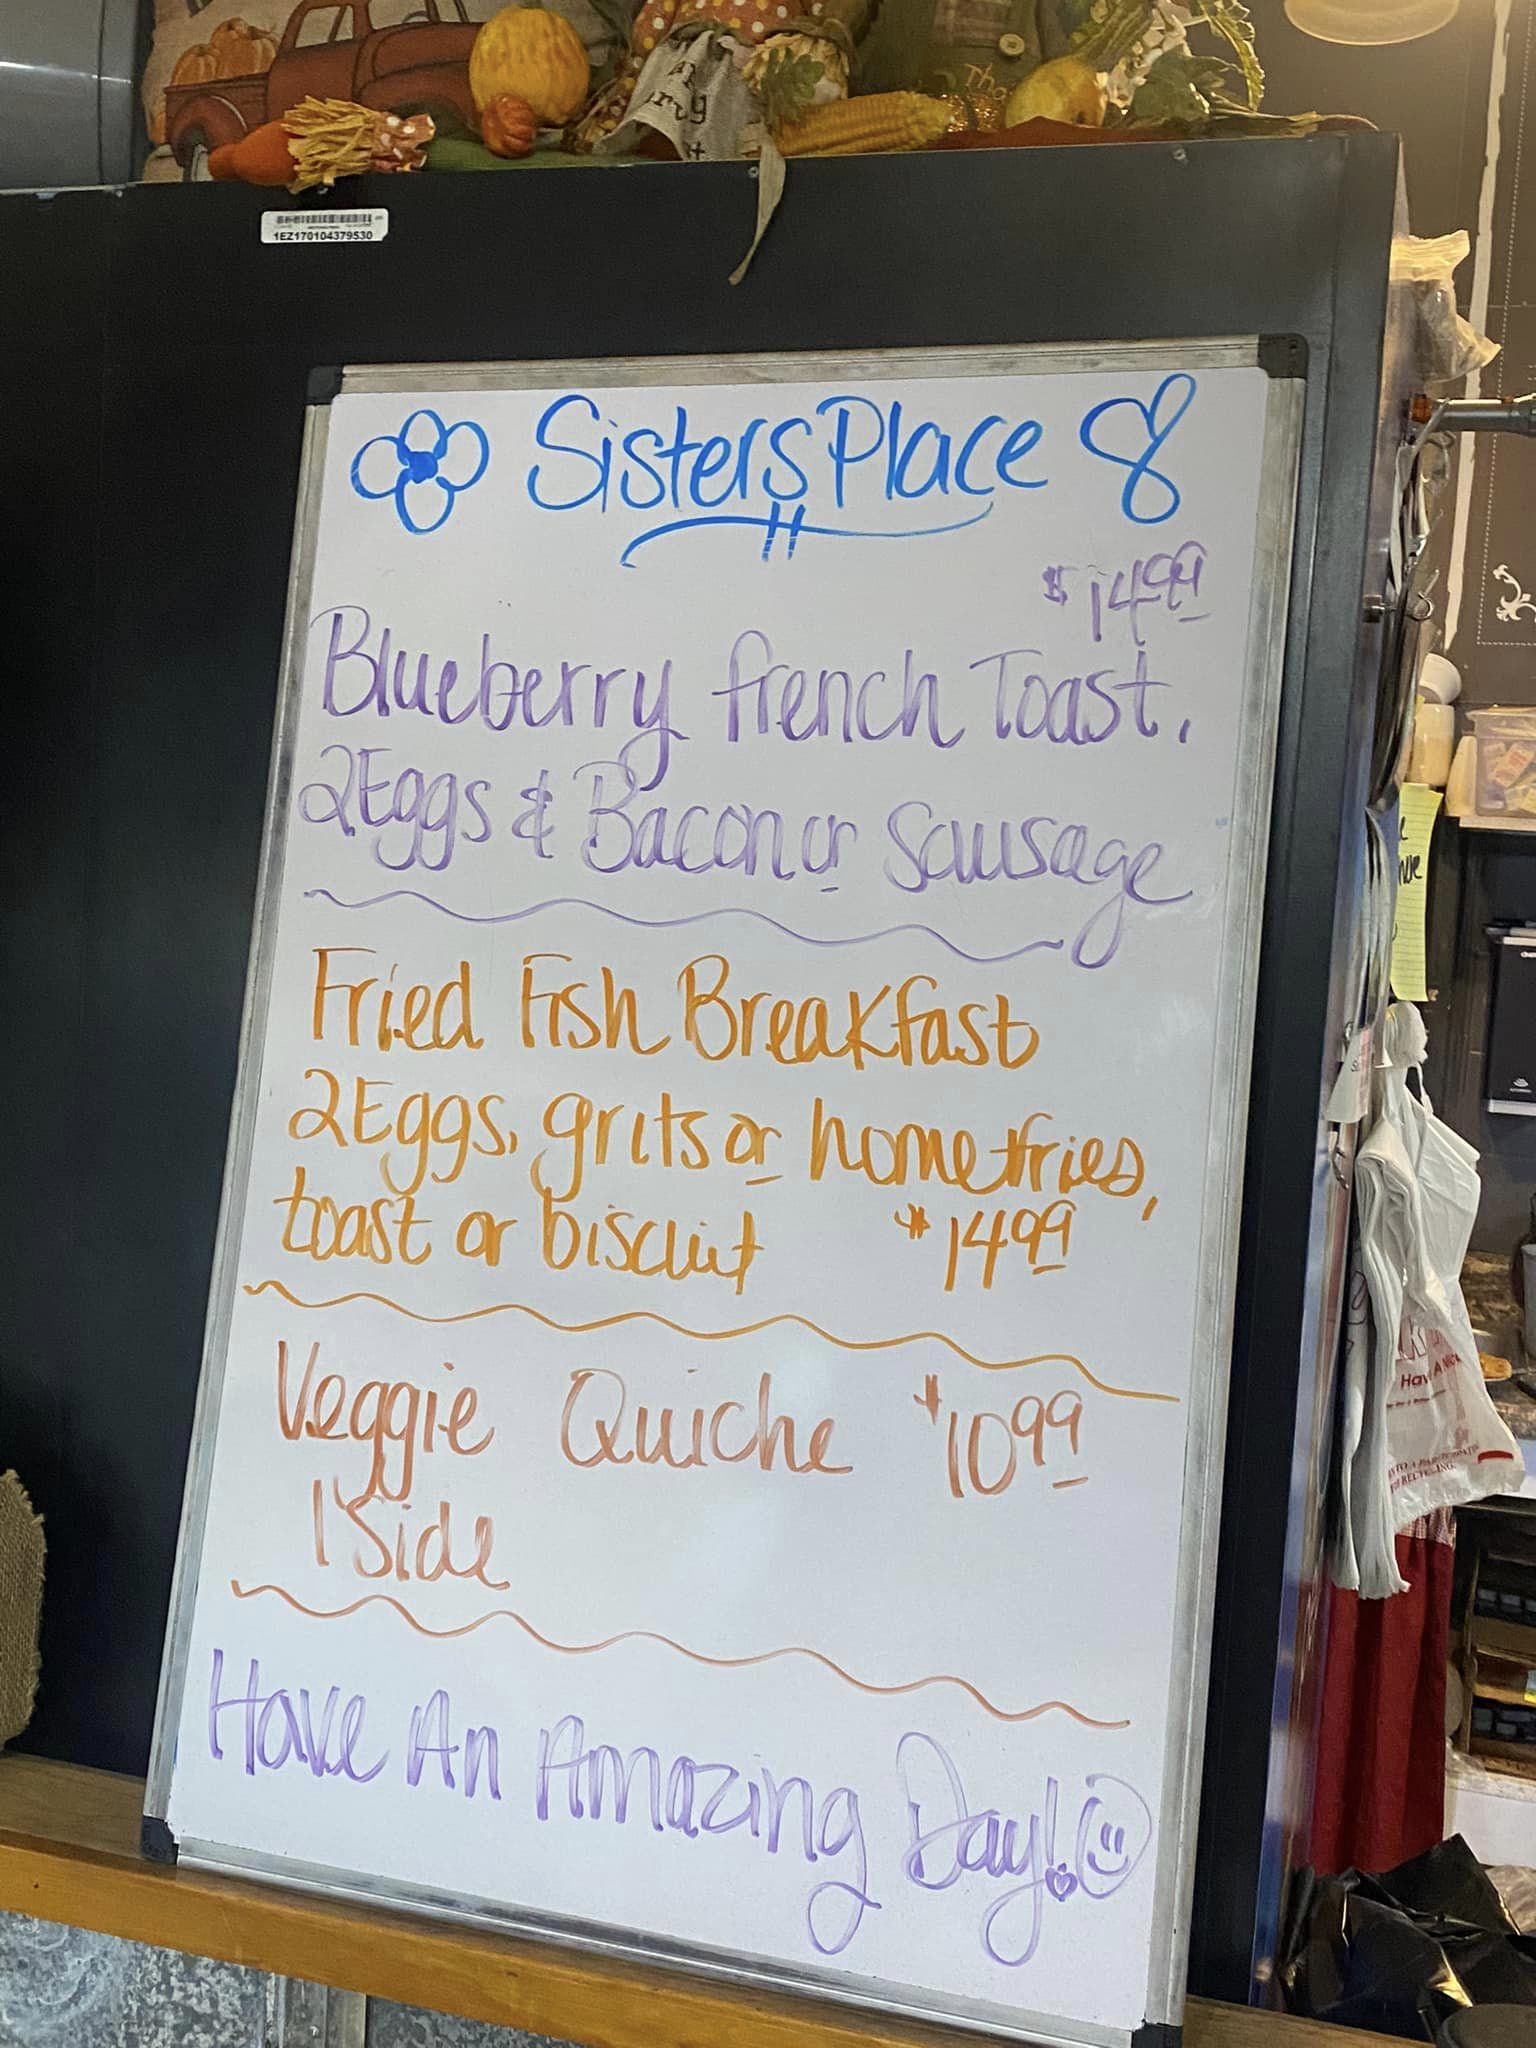 1EZ170104379530
Sisters Place
$14.99
Blueberry French Toast,
2 Eggs & Bacon or Sausage
Fried Fish Breakfast
2 Eggs, grits or homefries,
toast or biscuit $14.99
Veggie Quiche $10.99
1 Side
Have An Amazing Day!